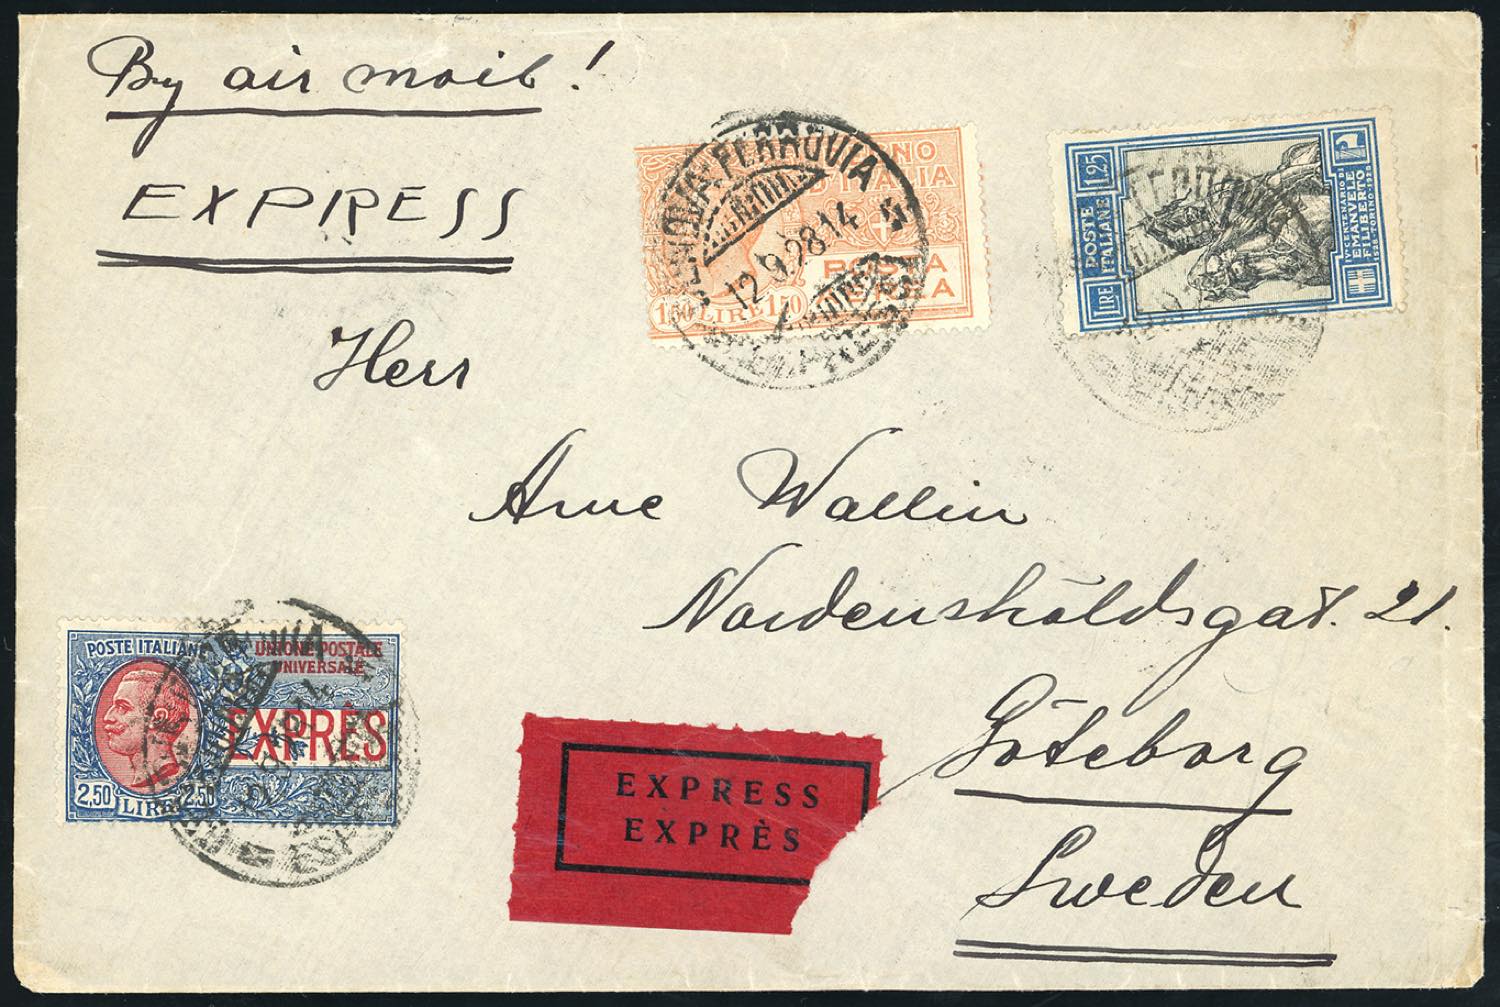 By air mail!
EXPRESS
Herr
Arne Wallin
Nordensköldsgat. 21.
Göteborg
Sweden
GENOVA-FERROVIA
12.9.28.14
D'ITALIA
POSTA
AEREA
1,50 LIRE 1,50
LIRE 1,25
POSTE ITALIANE
IV° CENTENARIO DI
EMANVELE
FILIBERTO
1528-TORINO-1928
POSTE ITALIANE
UNIONE POSTALE
UNIVERSALE
EXPRÈS
2,50 LIRE 2,50
EXPRESS
EXPRÈS